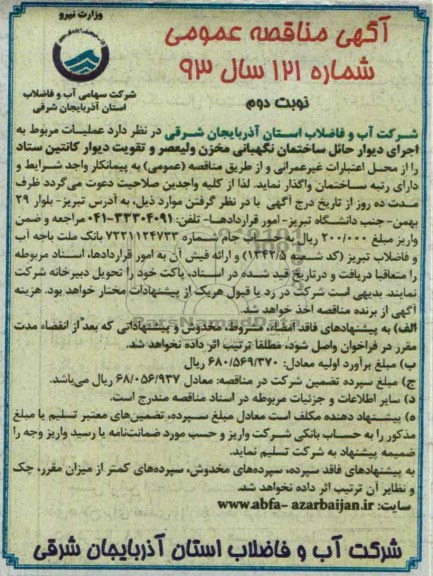 وزارت نیرو
شرکت سهامی آب و فاضلاب
استان آذربایجان شرقی
آگهی مناقصه عمومی
شماره ۱۲۱ سال ۹۳
نوبت دوم
شرکت آب و فاضلاب استان آذربایجان شرقی در نظر دارد عملیـات مربوط به
اجرای دیوار حائل ساختمان نگهبانی مخزن ولیعصر و تقویت دیوار کانتین ستاد
را از محـل اعتبارات غیرعمرانی و از طریق مناقصه (عمومی) به پیمانکار واجد شرایط و
دارای رتبه ساختمان واگذار نماید. لذا از کلیه واجدین صلاحیت دعوت می‌گردد ظرف
مـدت ده روز از تاریخ درج آگهی با در نظر گرفتن موارد ذیل، به آدرس تبریز- بلوار ۲۹
بهمن- جنب دانشگاه تبریز- امور قراردادهـا- تلفن: ۳۳۳۰۴۰۹۱-۰۴۱ مراجعه و ضمن
واریز مبلغ ۲۰۰/۰۰۰ ریال به حساب جام شماره ۷۲۲۱۱۲۴۷۳۳ بانک ملت باجه آب
و فاضلاب تبریز (کد شعبه ۱۳۴۲/۵) و ارائه فیش آن به امور قراردادها، اسناد مربوطه
را متعاقبا دریافت و درتاریخ قید شده در اسناد، پاکت خود را تحویل دبیرخانه شرکت
نمایند. بدیهی است شرکت در رد یا قبول هریک از پیشنهادات مختار خواهد بود. هزینه
آگهی از برنده مناقصه اخذ خواهد شد.
الف) به پیشنهادهای فاقد امضاء، مشروط، مخدوش و پیشنهاداتی که بعد از انقضاء مدت
مقرر در فراخوان واصل شود، مطلقا ترتیب اثر داده نخواهد شد.
ب) مبلغ برآورد اولیه معادل: ۶۸۰/۵۶۹/۳۷۰ ریال
ج) مبلغ سپرده تضمین شرکت در مناقصه: معادل ۶۸/۰۵۶/۹۳۷ ریال می‌باشد.
د) سایر اطلاعات و جزئیات مربوطه در اسناد مناقصه مندرج است.
ه) پیشنهاد دهنده مکلف است معادل مبلغ سـپرده، تضمین‌های معتبر تسلیم یا مبلغ
مذکور را به حساب بانکی شـرکت واریز و حسب مورد ضمانت‌نامه یا رسید واریز وجه را
ضمیمه پیشنهاد به شرکت تسلیم نماید.
به پیشنهادهای فاقد سپرده، سپرده‌های مخدوش، سپرده‌های کمتر از میزان مقرر، چک
و نظایر آن ترتیب اثر داده نخواهد شد.
سایت: www.abfa- azarbaijan.ir
شرکت آب و فاضلاب استان آذربایجان شرقی